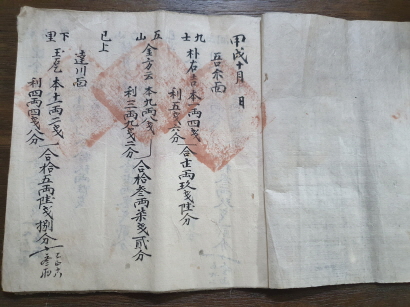 甲戌十月 日
吾奈面
九士 朴右吉 本一両四戔
利五戔六分
合壱両玖戔陸分
五山 金方云 本九両八戔
利三両九戔二分
合拾叁両柒戔貳分
已上
達川面
下里 玉尨 本十一両二戔
利四両四戔八分
合拾五両陸戔捌分